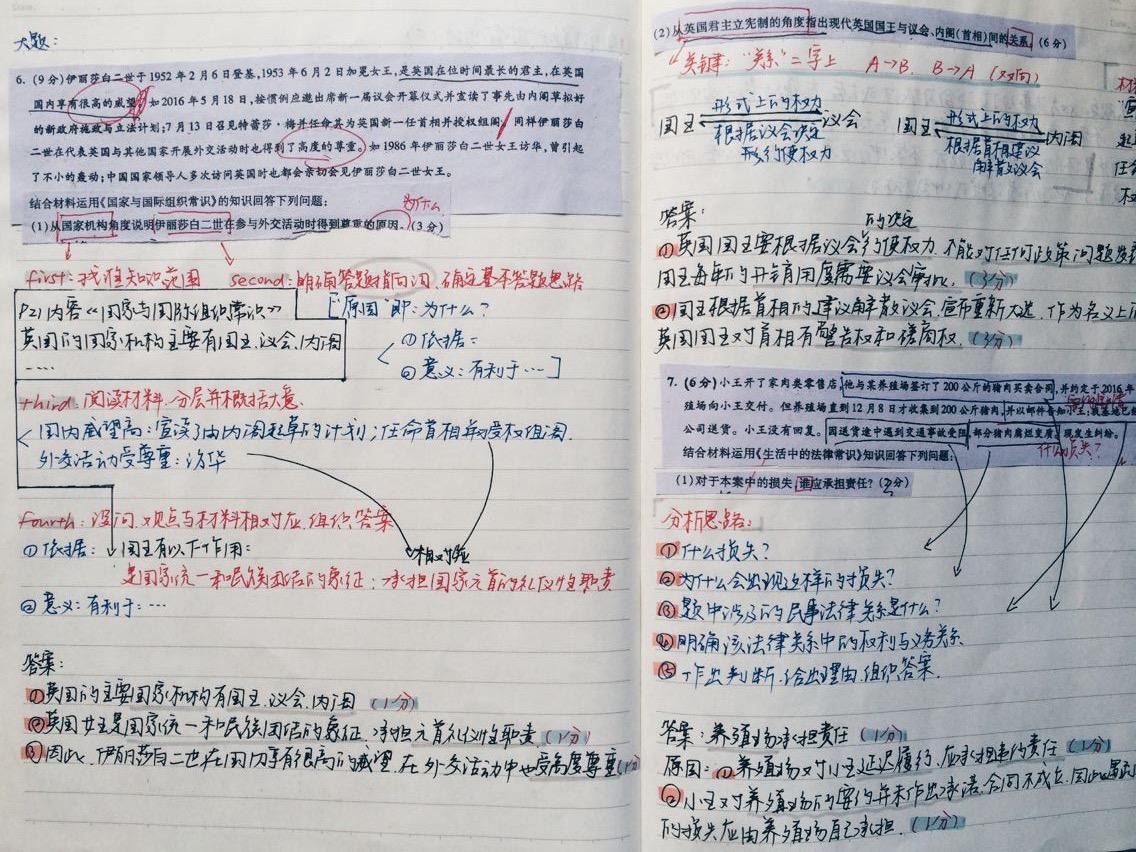 大题:
6.(9分)伊丽莎白二世于1952年2月6日登基,1953年6月2日加冕女王,是英国在位时间最长的君主,在英国
国内享有很高的威望。如2016年5月18日,按惯例应邀出席新一届议会开幕仪式并宣读了事先由内阁草拟好
的新政府施政与立法计划;7月13日召见特蕾莎·梅并任命其为英国新一任首相并授权组阁。同样伊丽莎白
二世在代表英国与其他国家开展外交活动时也得到了高度的尊重。如1986年伊丽莎白二世女王访华,曾引起
了不小的轰动;中国国家领导人多次访问英国时也都会亲切会见伊丽莎白二世女王。
结合材料运用《国家与国际组织常识》的知识回答下列问题:
为什么
(1)从国家机构角度说明伊丽莎白二世在参与外交活动时得到尊重的原因。(3分)
first:找准知识范围 second:明确答题指向词,确定基本答题思路
P21内容《国家与国际组织常识》
英国的国家机构主要有国王、议会、内阁
……
[原因 即:为什么?
①依据:
②意义:有利于…]
third:阅读材料,分层并概括大意.
国内威望高:宣读了由内阁起草的计划;任命首相并授权组阁.
外交活动受尊重:访华
fourth:设问、观点与材料相对应,组织答案
①依据: 国王有以下作用: 相对应
是国家统一和民族团结的象征;承担国家元首的礼仪性职责
②意义:有利于:…
答案:
①英国的主要国家机构有国王、议会、内阁 (1分)
②英国女王是国家统一和民族团结的象征、承担元首礼仪性职责.(1分)
③因此,伊丽莎白二世在国内享有很高的威望,在外交活动中也受高度尊重(1分)
(2)从英国君主立宪制的角度指出现代英国国王与议会、内阁(首相)间的关系。(6分)
关键:"关系"二字上 A→B. B→A (双向)
形式上的权力 形式上的权力
国王 议会 国王 内阁
根据议会决定 根据首相建议
形式行使权力 解散议会
答案: 的决定
①英国国王要根据议会行使权力,不能对任何政策问题发表
国王每年的开销用度需要议会审批. (3分)
②国王根据首相的建议解散议会,宣布重新大选,作为名义上
英国国王对首相有警告权和磋商权. (3分)
7.(6分)小王开了家肉类零售店,他与某养殖场签订了200公斤的猪肉买卖合同,并约定于2016年
殖场向小王交付。但养殖场直到12月8日才收集到200公斤猪肉,并以邮件告知小王:
公司送货。小王没有回复。因送货途中遇到交通事故受阻,部分猪肉腐烂变质。现发生纠纷。
什么损失?
结合材料运用《生活中的法律常识》知识回答下列问题:
(1)对于本案中的损失,谁应承担责任?(3分)
分析思路:
①什么损失?
②为什么会出现这样的损失?
③题中涉及的民事法律关系是什么?
④明确该法律关系中的权利与义务关系.
⑤作出判断,给出理由,组织答案.
答案:养殖场承担责任 (1分)
原因:①养殖场对小王延迟履行,应承担违约责任 (1分)
②小王对养殖场的要约并未作出承诺,合同不成立,因此
的损失应由养殖场自己承担. (1分)